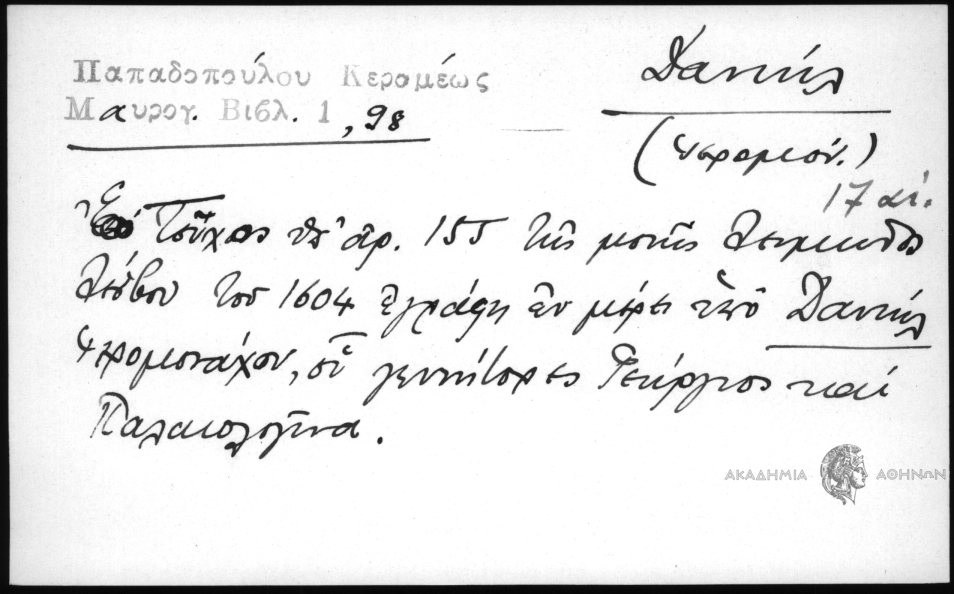 Παπαδοπούλου Κεραμέως
Μαυρογ. Βιβλ. 1, 98
Δανιήλ
(ἱερομον.)
17 αἰ.
Τεῦχος ὑπ' ἀρ. 155 τῆς μονῆς Λειμῶνος
Λέσβου τοῦ 1604 ἐγράφη ἐν μέρει ὑπὸ Δανιὴλ
ἱερομονάχου, οὗ γεννήτορες Γεώργιος καὶ
Παλαιολογῖνα.
ΑΚΑΔΗΜΙΑ ΑΘΗΝΩΝ